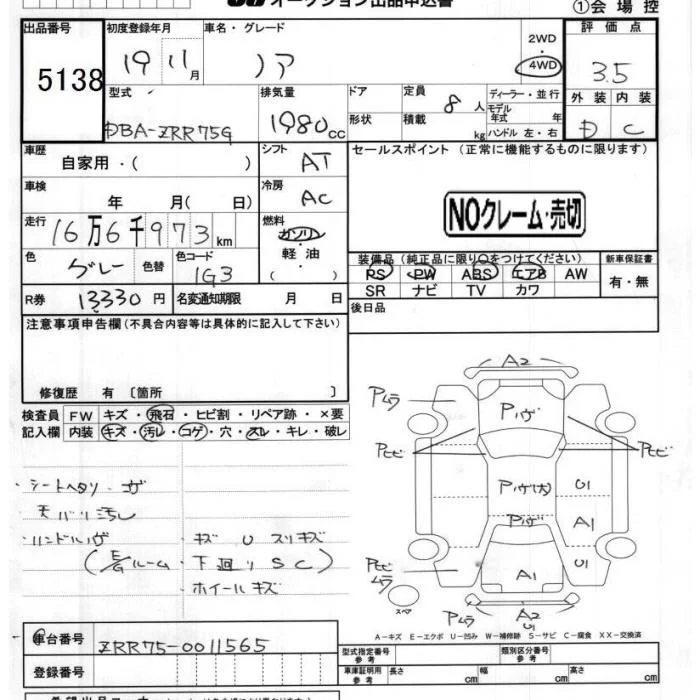 オークション出品申込書
①会場控
出品番号
5138
初度登録年月
19 11月
車名・グレード
ノア
2WD・4WD
評価点
3.5
型式
DBA-ZRR75G
排気量
1980cc
ドア
形状
定員
8人
積載
kg
ディーラー・並行
モデル年式 年
ハンドル 左・右
外装 内装
D C
車歴
自家用・( )
シフト
AT
セールスポイント (正常に機能するものに限ります)
NOクレーム・売切
車検
年 月( 日)
冷房
AC
走行
16万6千973km
燃料
ガソリン・軽油・( )
色
グレー
色替
色コード
1G3
装備品(純正品に限り○をつけてください)
PS PW ABS エアB AW
SR ナビ TV カワ
新車保証書
有・無
R券
13330円
名変通知期限 月 日
後日品
注意事項申告欄(不具合内容等は具体的に記入して下さい)
修復歴 有〔箇所 〕
検査員 FW キズ・飛石・ヒビ割・リペア跡・×要
記入欄 内装 キズ・汚レ・コゲ・穴・スレ・キレ・破レ
・シートヘタリ
・天バリ汚レ
・ハンドル
・キズ U スリキズ
(E/Gルーム・下回り SC)
・ホイールキズ
A2
Pムラ
Pハゲ
Pヒビ
Pヒビ
Pハゲ(大)
U1
Pハゲ
A1
Pヒビ
ムラ
A1
スペア
Pムラ
A2
U1
Pムラ
A-キズ E-エクボ U-凹み W-補修跡 S-サビ C-腐食 XX-交換済
車台番号
ZRR75-0011565
登録番号
型式指定番号
参考
類別区分番号
参考
車庫証明用
参考
長さ cm 幅 cm 高さ cm